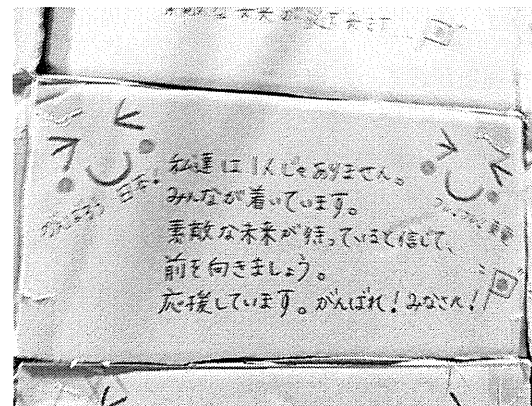 がんばろう 日本!
私達は1人じゃありません。
みんなが着いています。
素敵な未来が待っていると信じて、
前を向きましょう。
応援しています。がんばれ!みなさん!